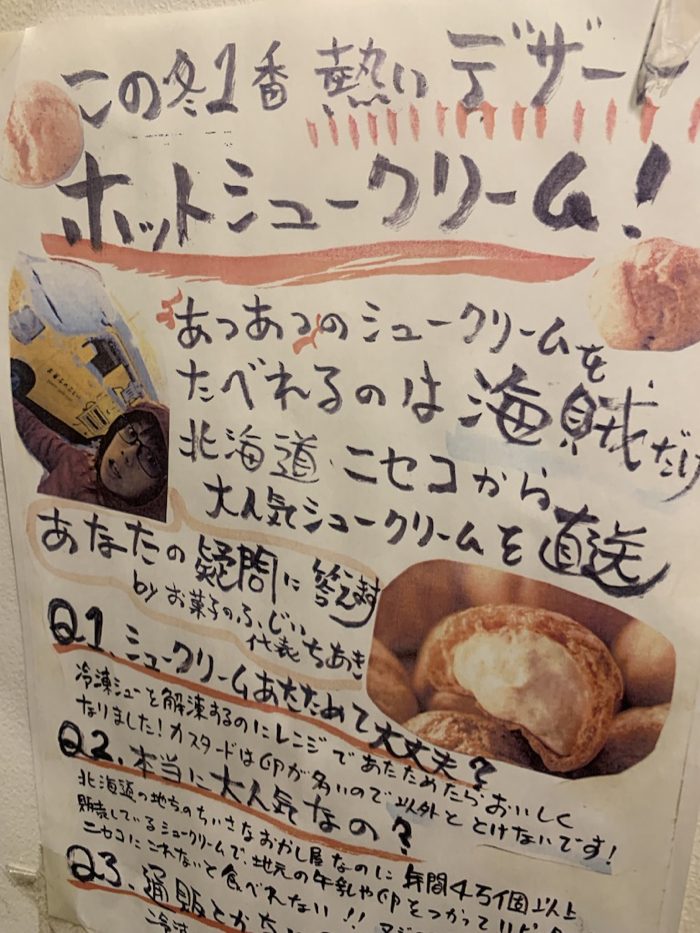 この冬1番熱いデザート
ホットシュークリーム!
あつあつのシュークリームを
たべれるのは海賊だけ
北海道・ニセコから
大人気シュークリームを直送
あなたの疑問に答えます
by お菓子のふじい
代表 ちあき
Q1. シュークリームあたためて大丈夫?
冷凍シューを解凍するのにレンジであたためたらおいしく
なりました!カスタードは卵が多いので以外ととけないです!
Q2. 本当に大人気なの?
北海道の地方のちいさなおかし屋なのに年間4万個以上
販売しているシュークリームで、地元の牛乳や卵をつかって
ニセコにこれないと食べれない!!
Q3. 通販とか
冷凍